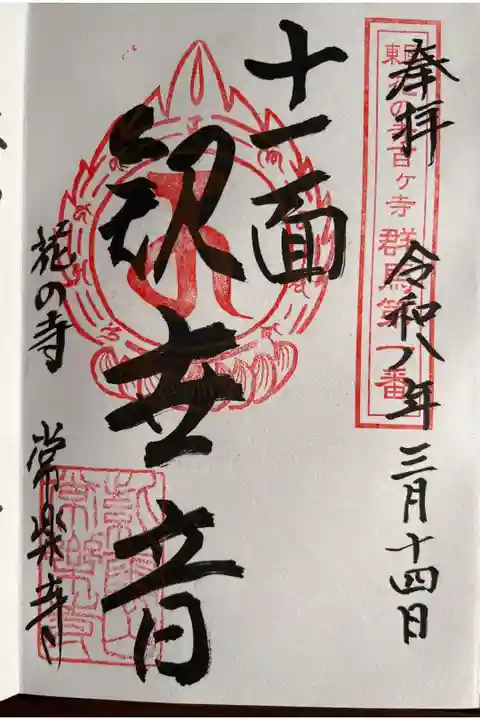 奉拝 令和八年三月十四日
東国花の寺百ヶ寺 群馬第一番
十一面
観世音
花の寺 常楽寺